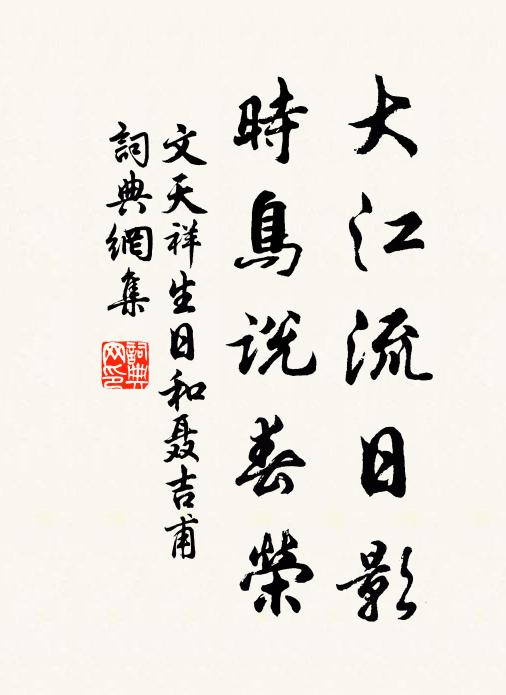 大江流日影
時鳥説春榮
文天祥生日和聂吉甫
詞典網集
詞典網印